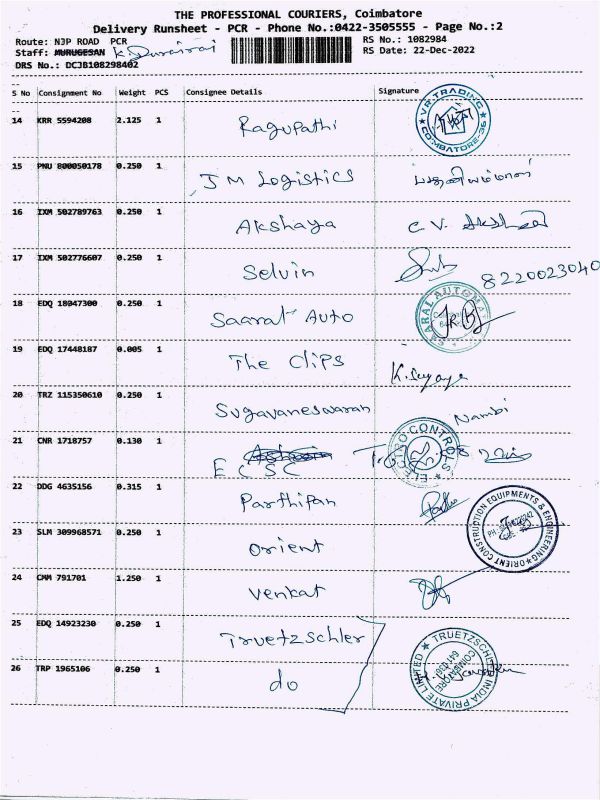 THE PROFESSIONAL COURIERS, Coimbatore
Delivery Runsheet - PCR - Phone No.:0422-3505555 - Page No.:2
Route: NJP ROAD PCR
RS No.: 1082984
Staff: MURUGESAN K. Durairaj
RS Date: 22-Dec-2022
DRS No.: DCJB108298402
S No Consignment No Weight PCS Consignee Details Signature
14 KRR 5594208 2.125 1 Ragupathi
VR TRADING
COIMBATORE-36
15 PNU 800050178 0.250 1 JM Logistics
16 IXM 502789763 0.250 1 Akshaya C.V.
17 IXM 502776607 0.250 1 Selvin 8220023040
18 EDQ 18047300 0.250 1 Saarat Auto
19 EDQ 17448187 0.005 1 The Clips
20 TRZ 115350610 0.250 1 Sugavaneswaran Nambi
21 CNR 1718757 0.130 1 ECSC
ELECTRO CONTROLS
22 DDG 4635156 0.315 1 Parthipan
23 SLM 309968571 0.250 1 Orient
ORIENT CONSTRUCTION EQUIPMENTS & ENGINEERING
24 CMM 791701 1.250 1 Venkat
25 EDQ 14923230 0.250 1 Truetzschler
26 TRP 1965106 0.250 1 do
TRUETZSCHLER INDIA PRIVATE LIMITED
COIMBATORE